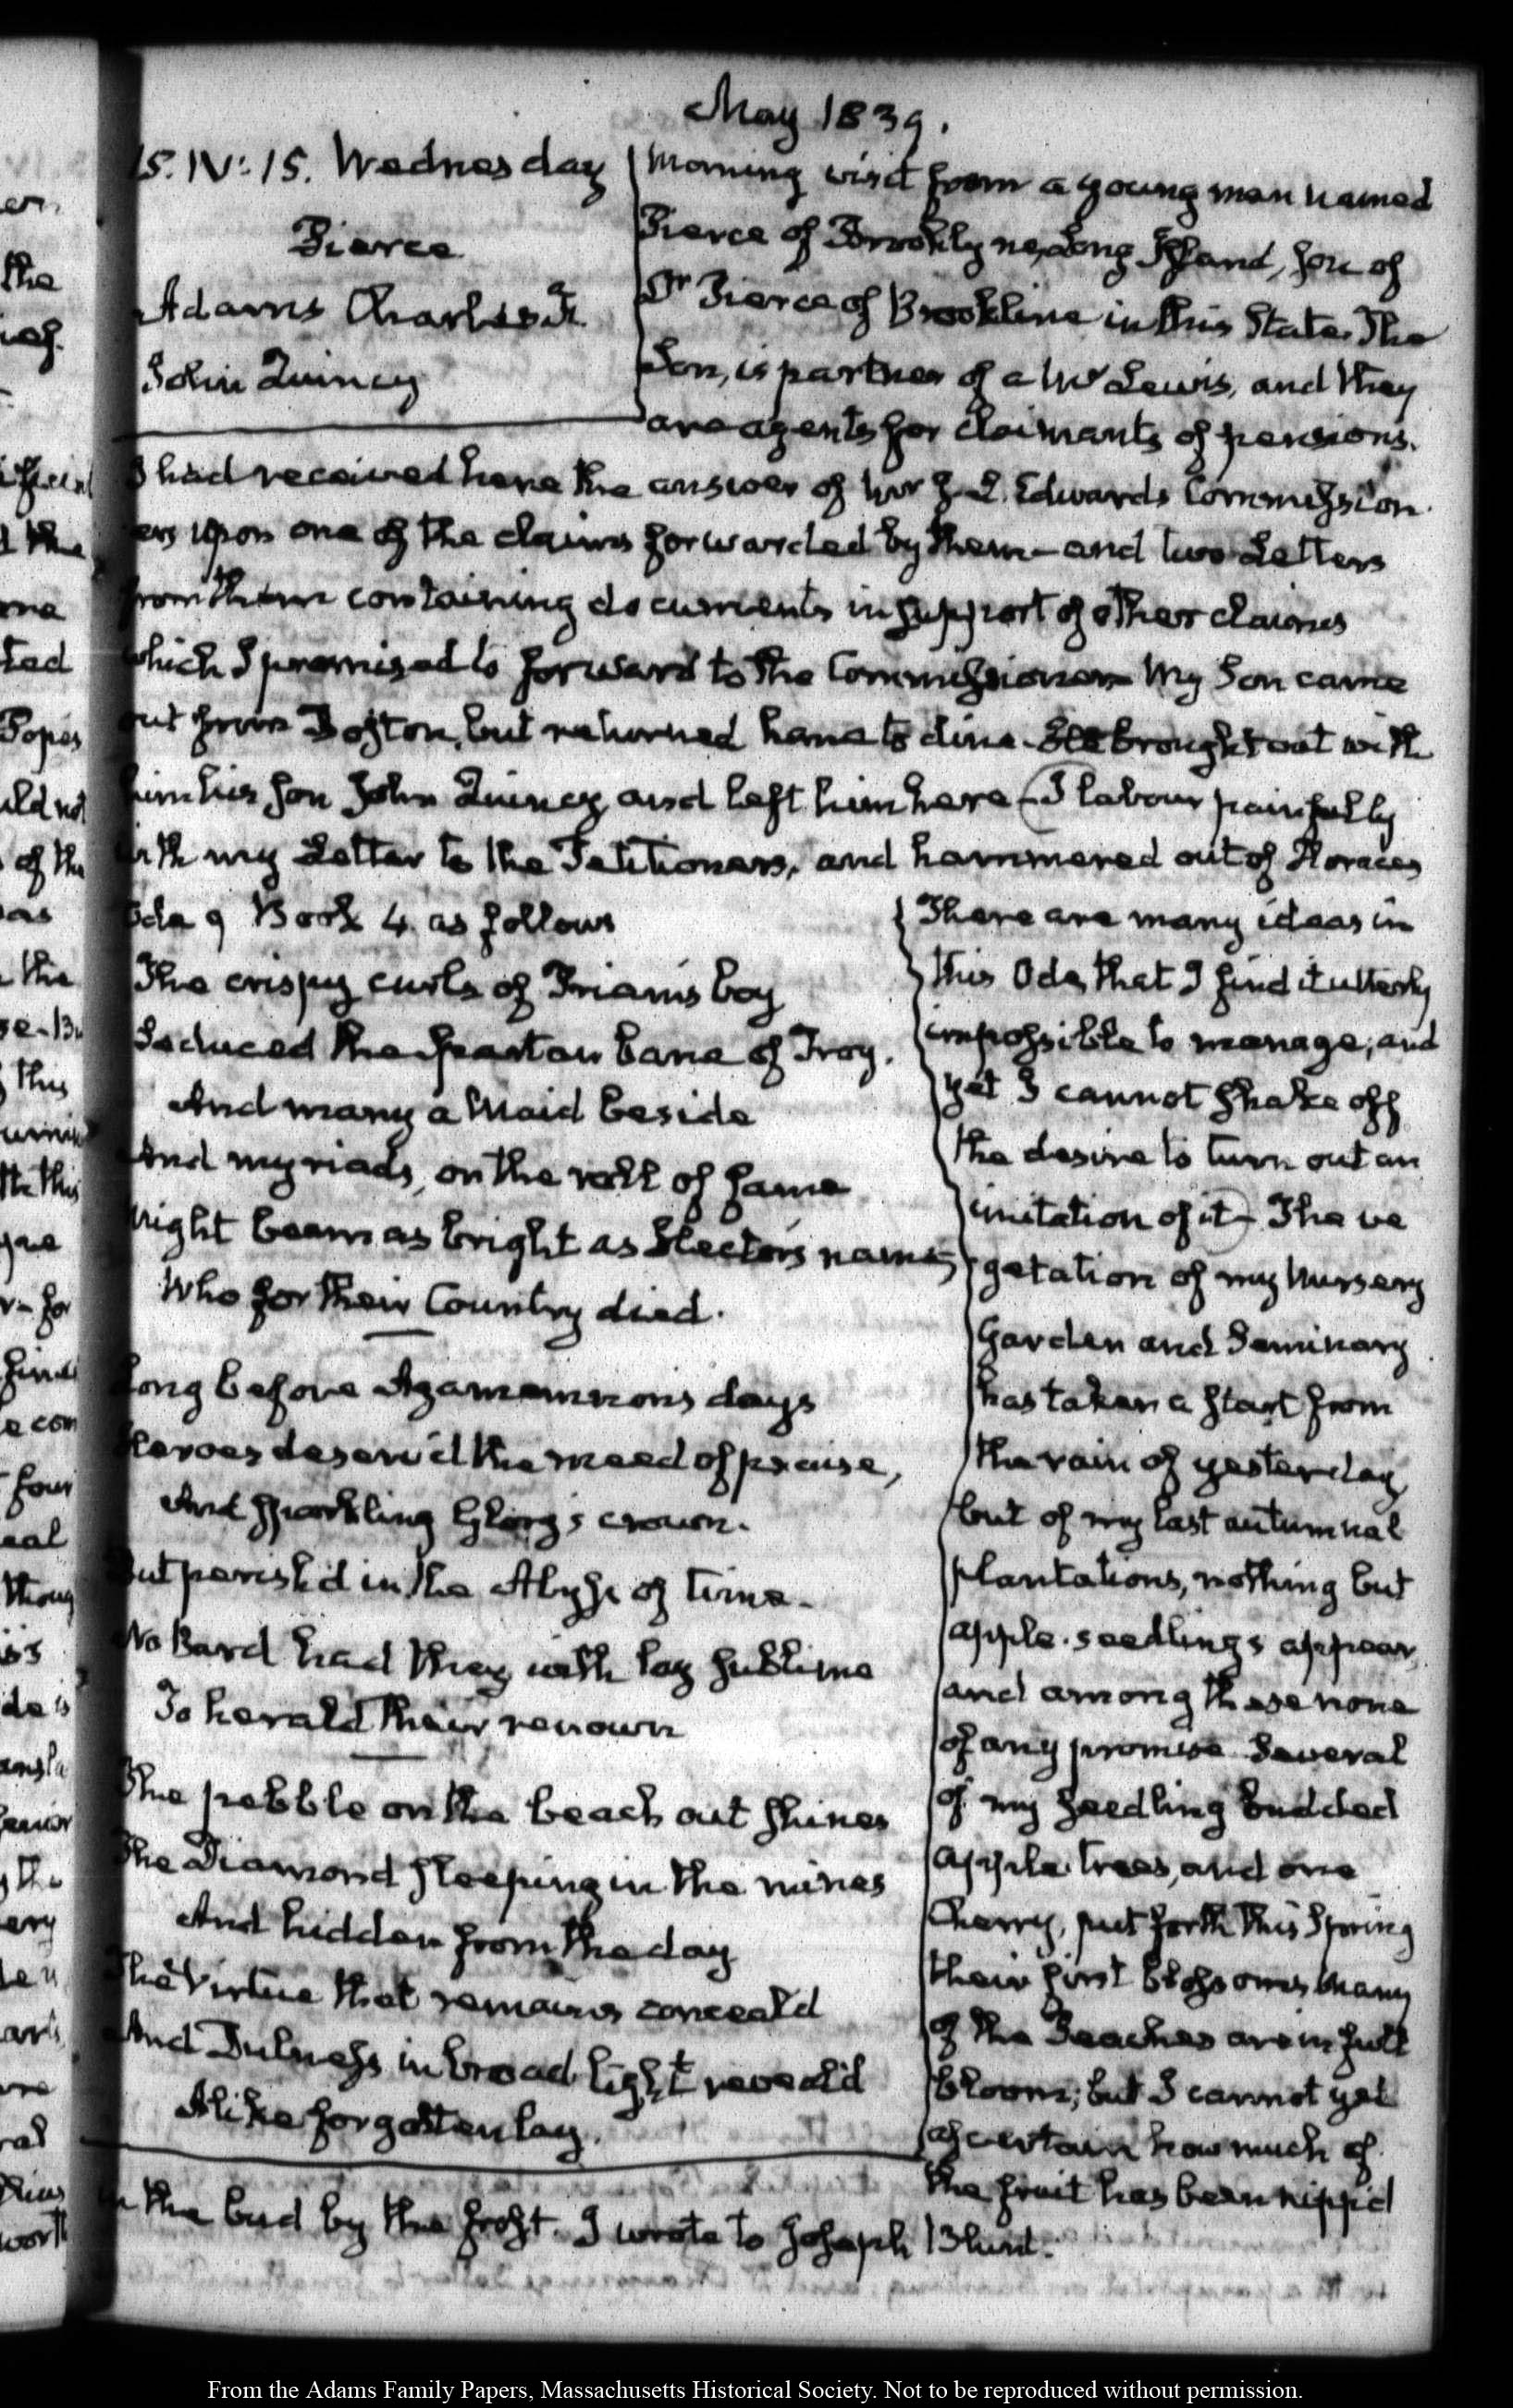 May 1839.
15. IV: 15. Wednesday
Pierce
Adams Charles F.
John Quincy
Morning visit from a young man named
Pierce of Brooklyne, Long Island, son of
Dr Pierce of Brookline in this State. The
Son, is partner of a Mr Lewis, and they
are agents for claimants of pensions.
I had received here the answer of Mr J. L. Edwards Commission
er upon one of the claims forwarded by them – and two Letters
from them containing documents in support of other claims
which I promised to forward to the Commissioner – My Son came
out from Boston, but returned home to dine. He brought out with
him his son John Quincy and left him here – I labour painfully
with my Letter to the Petitioners, and hammered out of Horace's
Ode 9 Book 4. as follows
The crispy curls of Priam's boy
Seduced the Spartan bane of Troy.
And many a Maid beside
And myriads, on the roll of fame
Might beam as bright as Hector's name,
Who for their Country died.
Long before Agamemnon's days
Heroes deserv'd the meed of praise,
And sparkling Glory's crown.
But perish'd in the Abyss of time.
No Bard had they with lay sublime
To herald their renown
The pebble on the beach out shines
The Diamond sleeping in the mines
And hidden from the day
The Virtue that remains conceal'd
And Dulness in broad light reveal'd
Alike forgotten lay.
There are many ideas in
this Ode that I find it utterly
impossible to manage, and
yet I cannot shake off
the desire to turn out an
imitation of it – The ve
getation of my Nursery
Garden and Seminary
has taken a start from
the rain of yesterday
but of my last autumnal
plantations, nothing but
apple-seedlings appear,
and among these none
of any promise Several
of my seedling budded
apple trees, and one
Cherry, put forth this Spring
their first blossoms Many
of the Peaches are in full
bloom; but I cannot yet
ascertain how much of
the fruit has been nipp'd
in the bud by the frost. I wrote to Joseph Blunt.
From the Adams Family Papers, Massachusetts Historical Society. Not to be reproduced without permission.